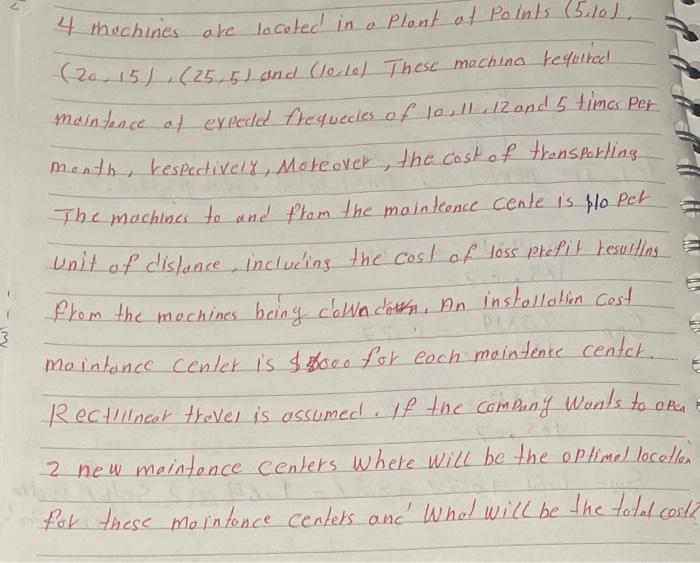 4 mochines are locoted in a Plant at Points (5,10),
(20,15), (25,5) and (10,10) These machina required
maintance at expected frequecies of 10, 11, 12 and 5 times Per
month, respectively, Moreover, the cost of transporting
The machines to and from the mainteance cente is $10 per
unit of distance, including the cost of loss profit resulting
from the machines being down. An installation cost
maintance center is for each maintence center.
Rectilinear travel is assumed. If the company wants to open
2 new maintance centers where will be the optimal location
for these maintance centers and what will be the total cost?